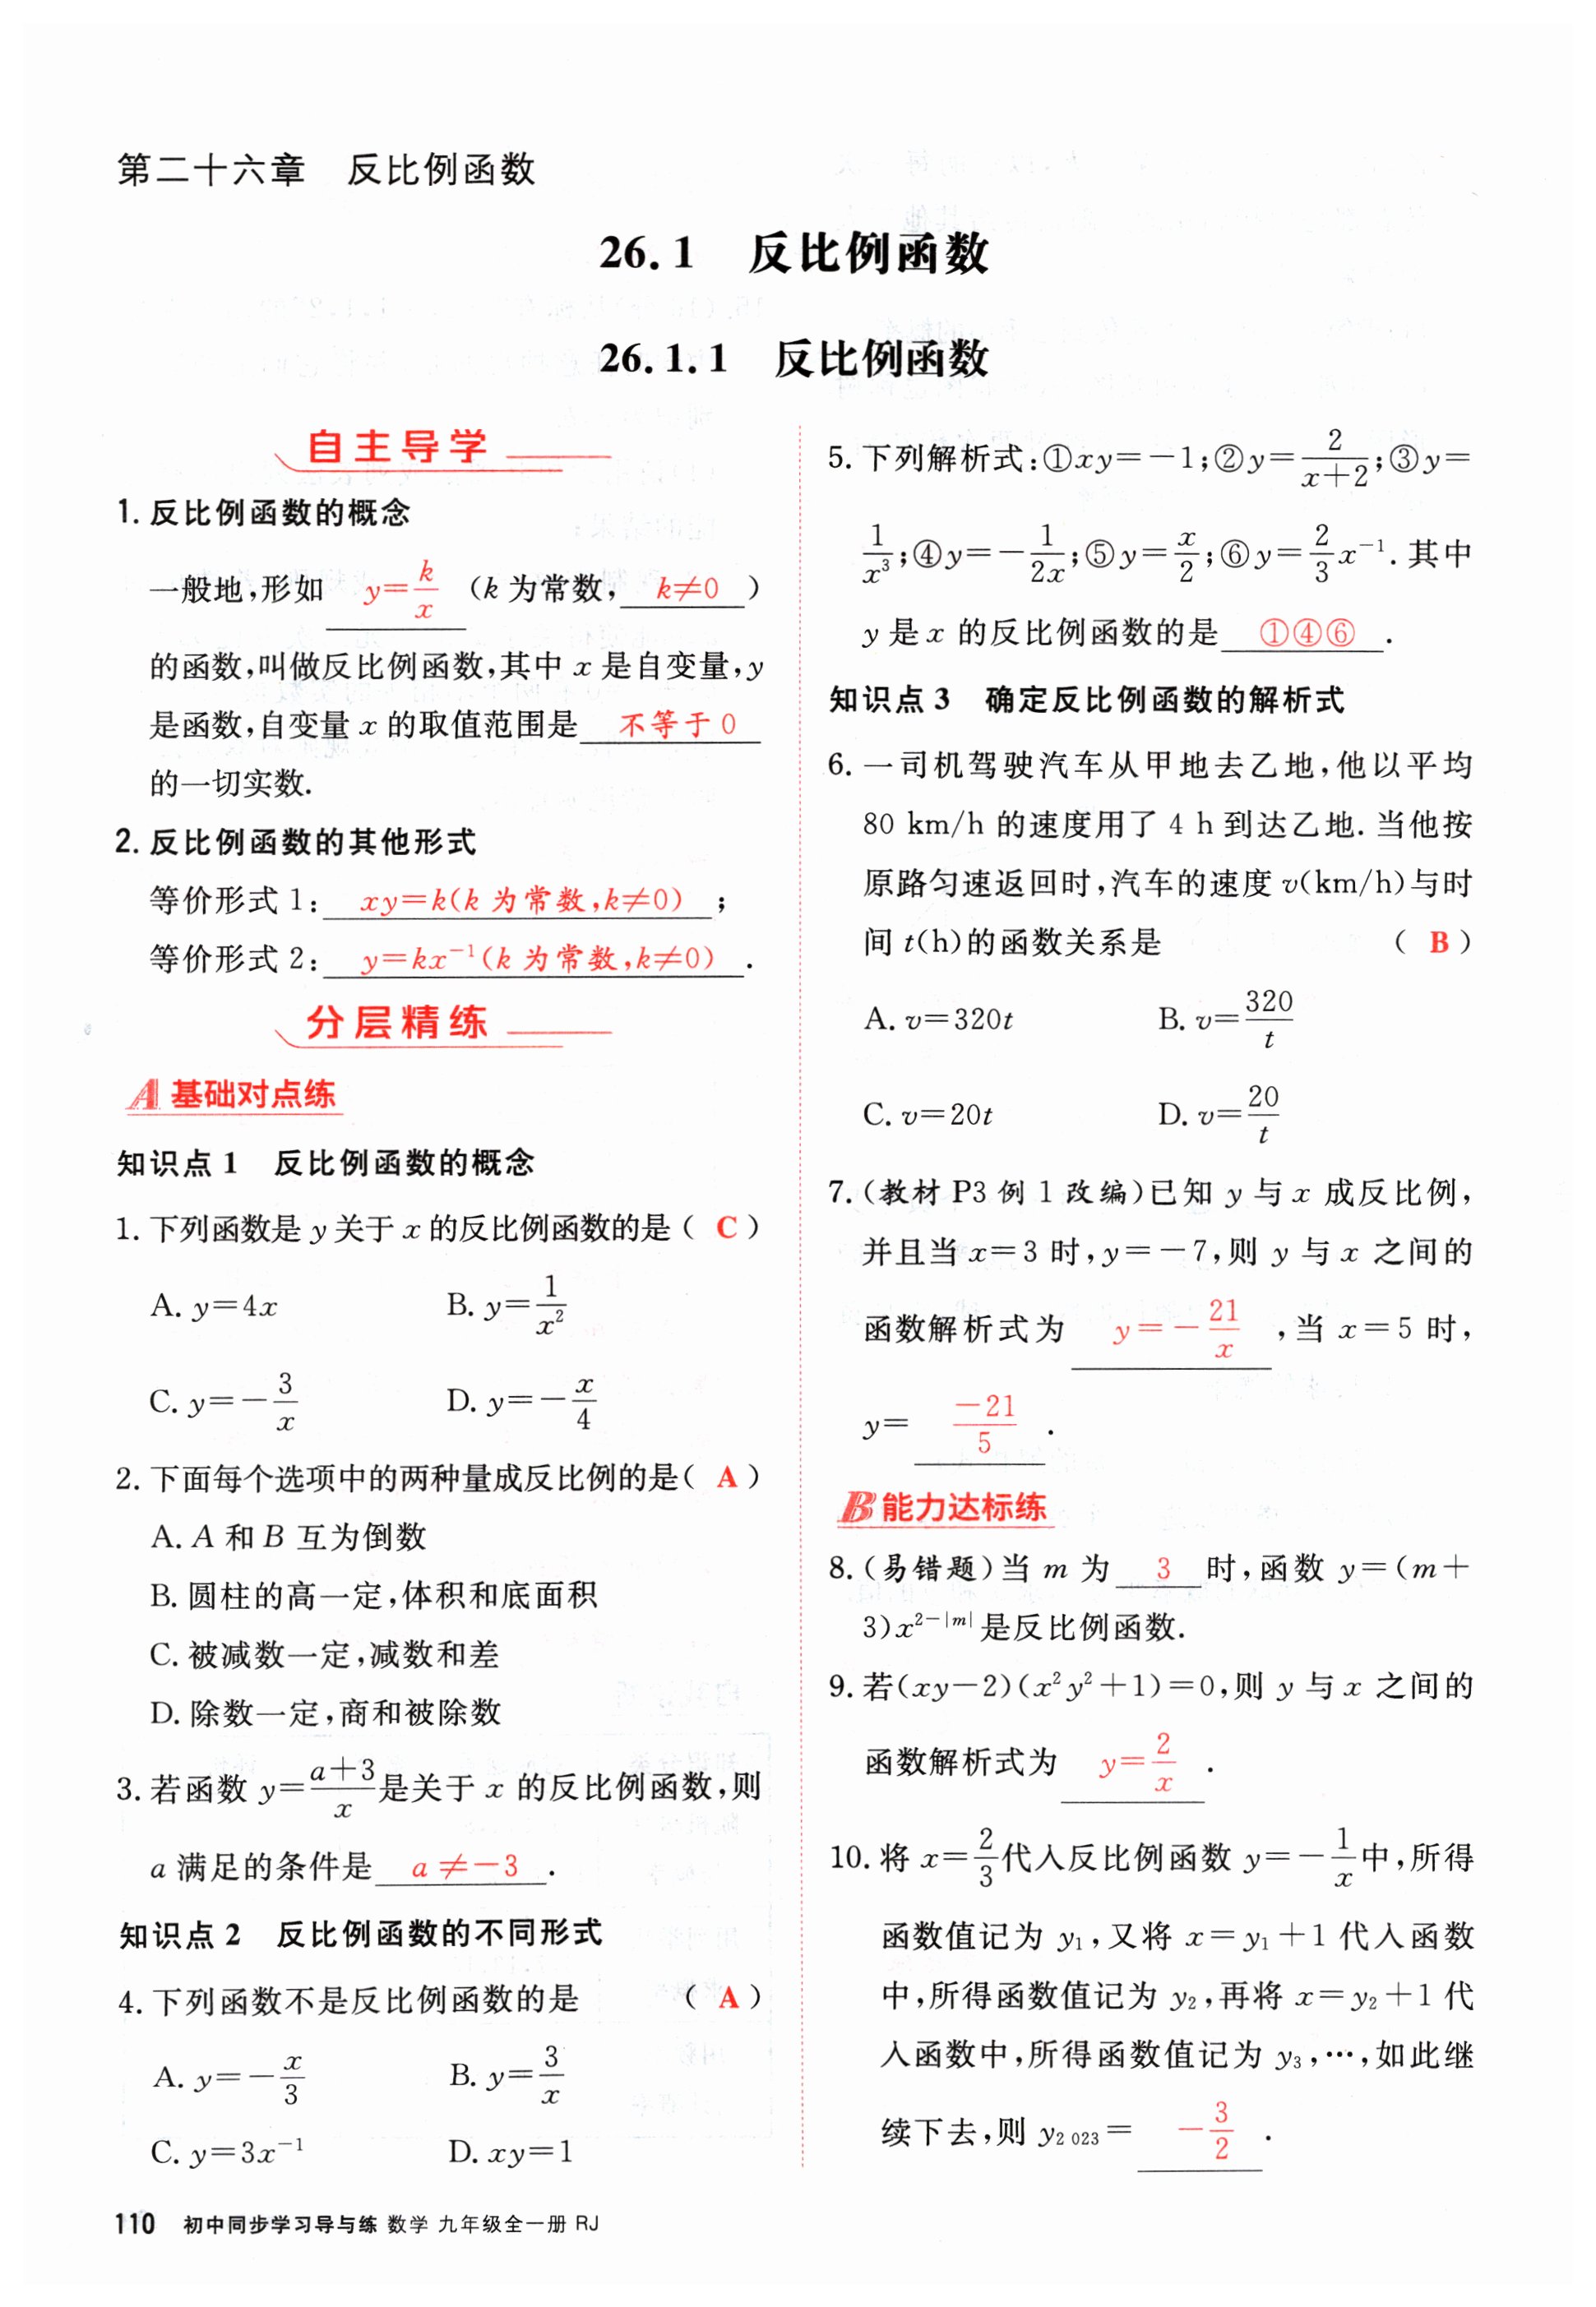 第二十六章 反比例函数
26.1 反比例函数
26.1.1 反比例函数
自主导学
1. 反比例函数的概念
一般地,形如 y=k/x (k 为常数, k≠0 )
的函数,叫做反比例函数,其中 x 是自变量,y
是函数,自变量 x 的取值范围是 不等于 0
的一切实数.
2. 反比例函数的其他形式
等价形式 1: xy=k(k 为常数,k≠0) ;
等价形式 2: y=kx⁻¹(k 为常数,k≠0) .
分层精练
A 基础对点练
知识点 1 反比例函数的概念
1. 下列函数是 y 关于 x 的反比例函数的是( C )
A. y=4x B. y=1/x²
C. y=-3/x D. y=-x/4
2. 下面每个选项中的两种量成反比例的是( A )
A. A 和 B 互为倒数
B. 圆柱的高一定,体积和底面积
C. 被减数一定,减数和差
D. 除数一定,商和被除数
3. 若函数 y=(a+3)/x 是关于 x 的反比例函数,则
a 满足的条件是 a≠-3 .
知识点 2 反比例函数的不同形式
4. 下列函数不是反比例函数的是 ( A )
A. y=-x/3 B. y=3/x
C. y=3x⁻¹ D. xy=1
5. 下列解析式:①xy=-1;②y=2/(x+2);③y=
1/x³;④y=-1/(2x);⑤y=x/2;⑥y=2/3 x⁻¹. 其中
y 是 x 的反比例函数的是 ①④⑥ .
知识点 3 确定反比例函数的解析式
6. 一司机驾驶汽车从甲地去乙地,他以平均
80 km/h 的速度用了 4 h 到达乙地. 当他按
原路匀速返回时,汽车的速度 v(km/h)与时
间 t(h)的函数关系是 ( B )
A. v=320t B. v=320/t
C. v=20t D. v=20/t
7. (教材 P3 例 1 改编)已知 y 与 x 成反比例,
并且当 x=3 时,y=-7,则 y 与 x 之间的
函数解析式为 y=-21/x ,当 x=5 时,
y= -21/5 .
B 能力达标练
8. (易错题)当 m 为 3 时,函数 y=(m+
3)x²⁻|ᵐ| 是反比例函数.
9. 若(xy-2)(x²y²+1)=0,则 y 与 x 之间的
函数解析式为 y=2/x .
10. 将 x=2/3 代入反比例函数 y=-1/x 中,所得
函数值记为 y₁,又将 x=y₁+1 代入函数
中,所得函数值记为 y₂,再将 x=y₂+1 代
入函数中,所得函数值记为 y₃,…,如此继
续下去,则 y₂ ₀₂₃= -3/2 .
110 初中同步学习导与练 数学 九年级全一册 RJ